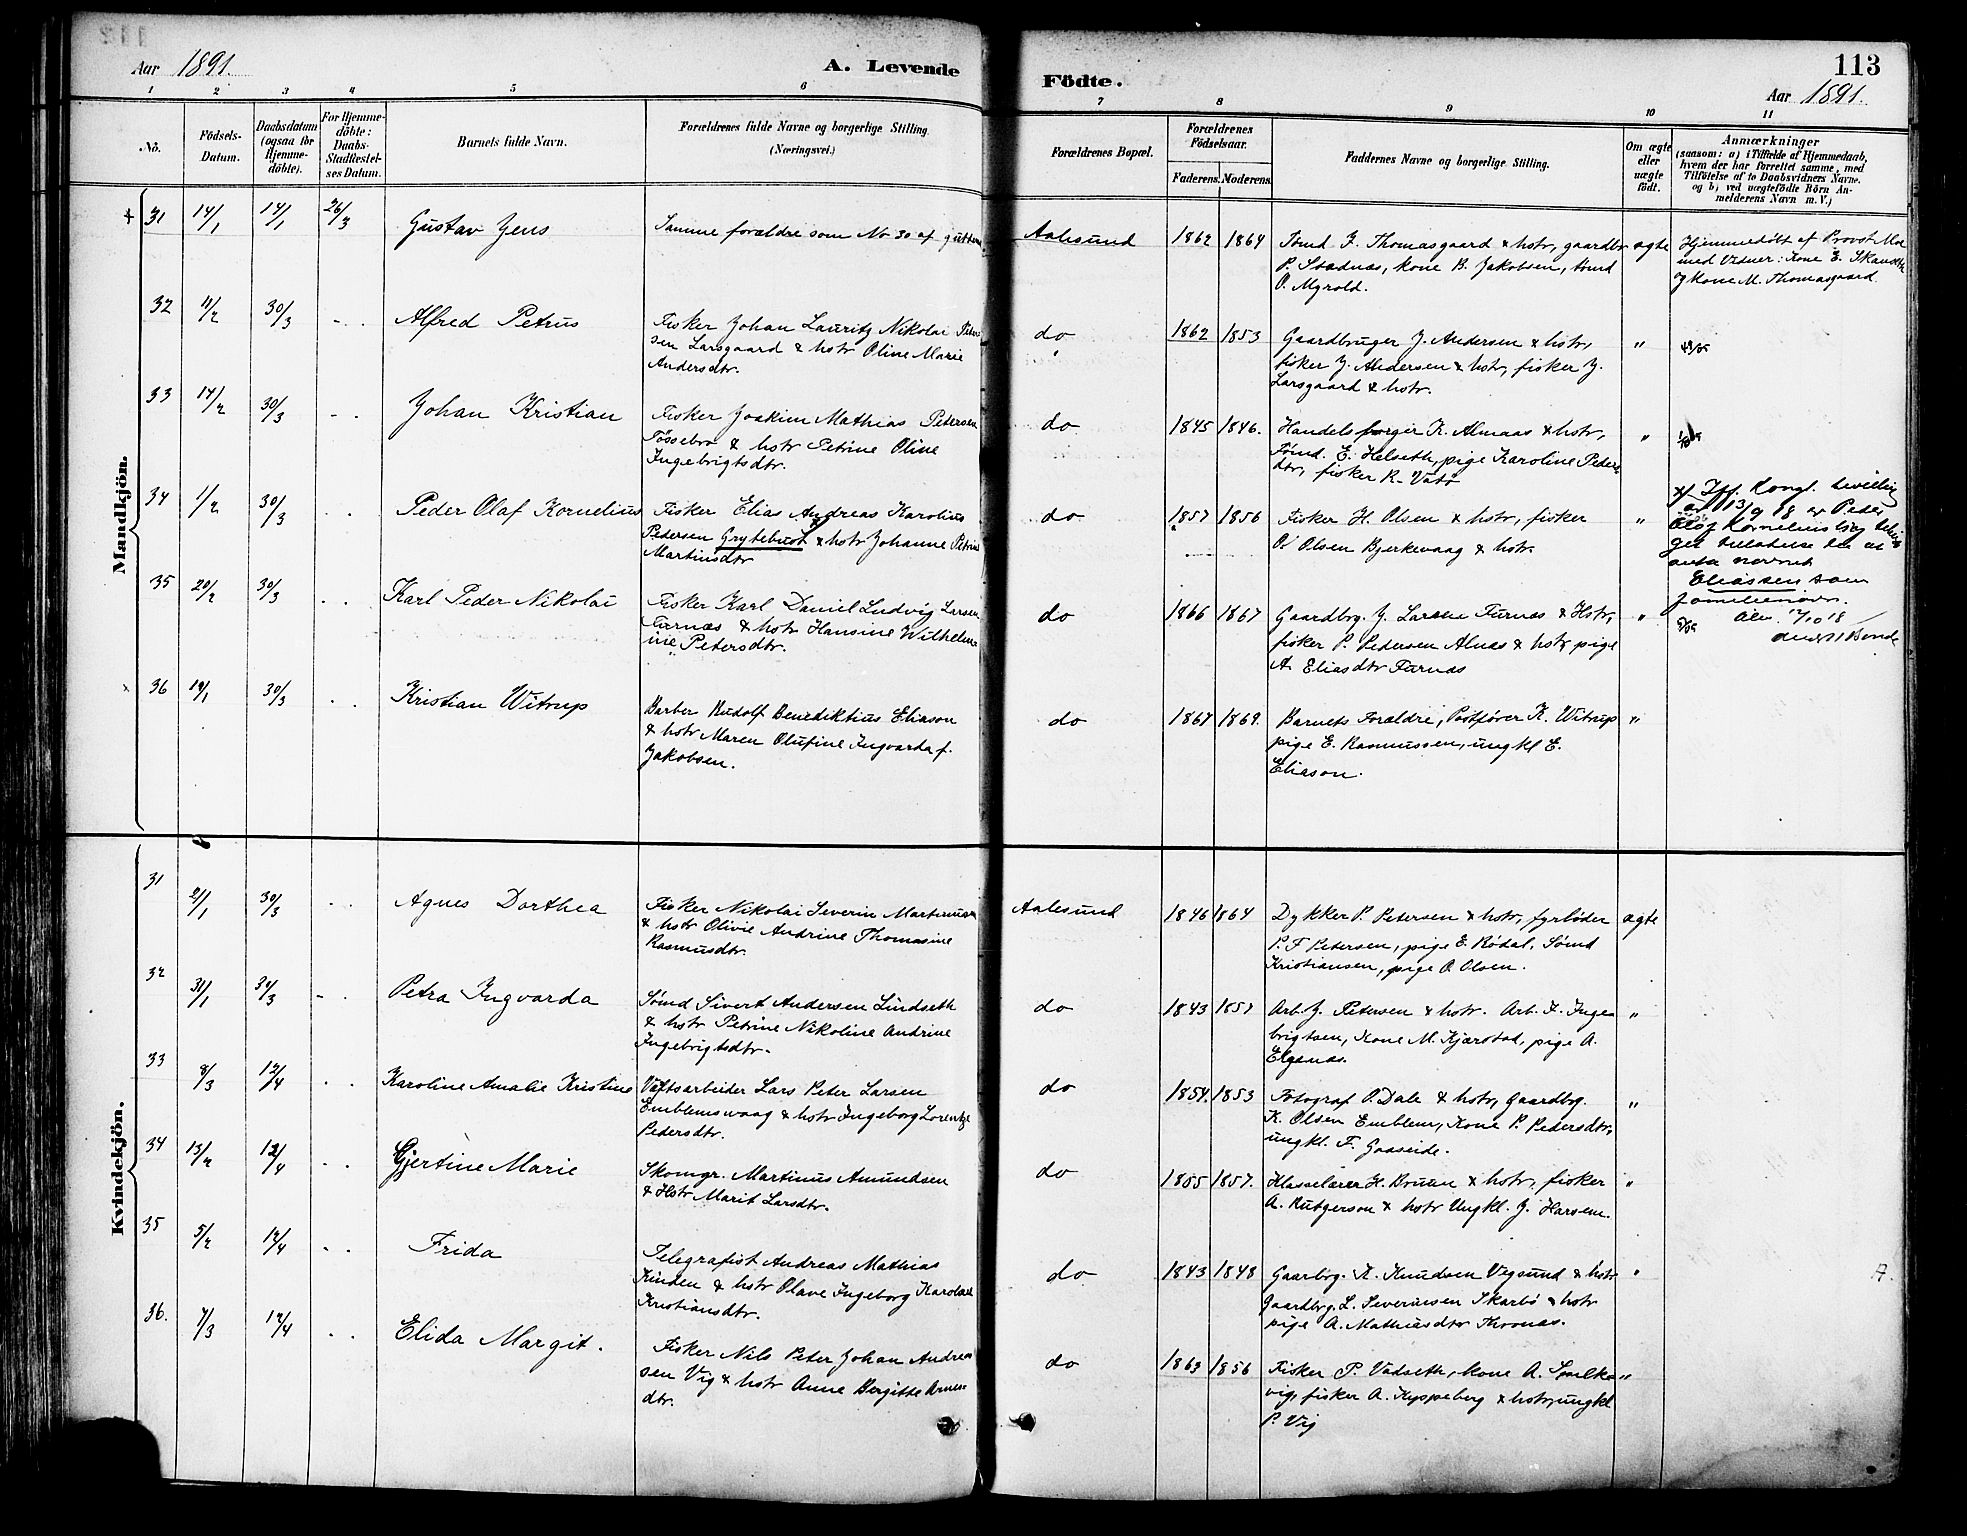 Aar 1891.
A. Levende
Födte.
113
Aar 1891.
1 2 3 4 5 6 7 8 9 10 11
No.
Födsels-Datum.
Daabsdatum (ogsaa for Hjemme-döbte).
For Hjemme-döbte: Daabs-Stadfæstel-ses Datum.
Barnets fulde Navn.
Forældrenes fulde Navne og borgerlige Stilling. (Næringsvei.)
Forældrenes Bopæl.
Forældrenes Födselsaar.
Faderens. Moderens.
Faddernes Navne og borgerlige Stilling.
Om ægte eller uægte födt.
Anmærkninger
(saasom: a) i Tilfælde af Hjemmedaab, hvem der har forrettet samme, med Tilföielse af to Daabsvidners Navne. og b) ved uægtefödte Börn An-melderens Navn m. V.)
Mandkjön.
31 14/1 14/1 26/3 Gustav Jens
Samme forældre som No 30 af gutterne
Aalesund 1862 1864
Tømd I. Thomasgaard & hstr, gaardbr
P. Stadnæs, kone B. Jakobsen, tømd
O. Myrold.
ægte
Hjemmedöbt af Provst Moe
med Vidner: Kone E. Skandse
og Kone M. Thomasgaard.
32 11/2 30/3 - . Alfred Petrus
Fisker Johan Lauritz Nikolai Peter
sen Larsgaard & hstr Oline Marie
Andersdtr.
do 1862 1853
Gaardbruger J. Andersen & hstr,
fisker J. Andersen & hstr, fisker J.
Larsgaard & hstr.
"
33 14/2 30/3 - . Johan Kristian
Fisker Joakim Mathias Petersen
Fössebro & hstr Petrine Oline
Ingebrigtsdtr.
do 1845 1846.
Handelsborger K. Almaas & hstr,
Tømd. E. Helseth, pige Karoline Peders
dtr, fisker R. Vatö
"
34 1/2 30/3 . . Peder Olaf Kornelius
Fisker Elias Andreas Karolius
Pedersen Grytebust & hstr Johanne Petrine
Martinsdtr
do 1857 1856
Fisker H. Olsen & hstr, fisker
O. Olsen Bjerkevaag & hstr.
"
x/ Iflg. Kongl. bevilling
av 13/9 18 er Peder
Olaf Kornelius
get tilladelse til at
anta navnet
Eliassen som
familienavn.
Ale. 12/10 18
35 20/2 30/3 . . Karl Peder Nikolai
Fisker Karl Daniel Ludvig Larsen
Furnæs & hstr Hansine Wilhelm
ine Petersdtr.
do 1866 1867
Gaardbrg. J. Larsen Furnæs & Hstr,
fisker P. Pedersen Alnæs & hstr, pige
A. Eliasdtr Furnæs
"
36 19/1 30/3 . . Kristian Witrup
Barber Rudolf Benediktius Eliason
& hstr Maren Olufine Ingvarda f.
Jakobsen.
do 1867 1869.
Barnets Forældre, Postfører K. Witrup
pige E. Rasmussen, ungkl E.
Eliason.
"
Kvindekjön.
31 2/1 30/3 . . Agnes Dorthea
Fisker Nikolai Severin Martinusen
& hstr Olivie Andrine Thomasine
Rasmusdtr.
Aalesund 1846 1864
Dykker P. Petersen & hstr, fyrbøder
P. F Petersen, pige E. Rödal, Sømd
Kristiansen, pige O. Olsen.
ægte
32 31/1 30/3 - . Petra Ingvarda
Sømd Sivert Andersen Lindseth
& hstr Petrine Nikoline Andrine
Ingebrigtsdtr.
do 1843 1857
Arb. J. Petersen & hstr. Arb. I. Inge
brigtsen, Kone M. Kjærstad, pige A.
Elgenæs.
"
33 8/3 12/4 . . Karoline Amalie Kristine
Væftsarbeider Lars Peter Larsen
Emblemsvaag & hstr Ingeborg Lorentze
Pedersdtr.
do 1854. 1853
Fotograf O. Dale & hstr, Gaardbrg.
K. Olsen Emblem, Kone P. Pedersdtr,
ungkl. F. Gaaseide.
"
34 13/2 12/4 . . Gjertine Marie
Skomgr. Martinus Amundsen
& Hstr Marit Larsdtr.
do 1855 1857.
Klasselærer H. Bruun & hstr, fisker
A. Rutgerson & hstr Ungkl. J. Harsem.
"
35 5/2 12/4 . . Frida
Telegrafist Andreas Mathias
Kinden & hstr Olave Ingeborg Karoline
Kristiansdtr.
do 1843 1848
Gaarbrg. K. Knudsen Vegsund & hstr
Gaardbrg. L. Severinsen Skarbö & hstr
pige A. Mathiasdtr Thornæs.
"
36. 1/3 12/4 . . Elida Margit.
Fisker Nils Peter Johan Andrea
sen Vig & hstr Anne Bergitte Arnes
dtr.
do 1863 1856
Fisker P. Vadseth, Kone A. Spelka
vig, fisker A. Kyppeberg & hstr, ungkl
P. Vig
"